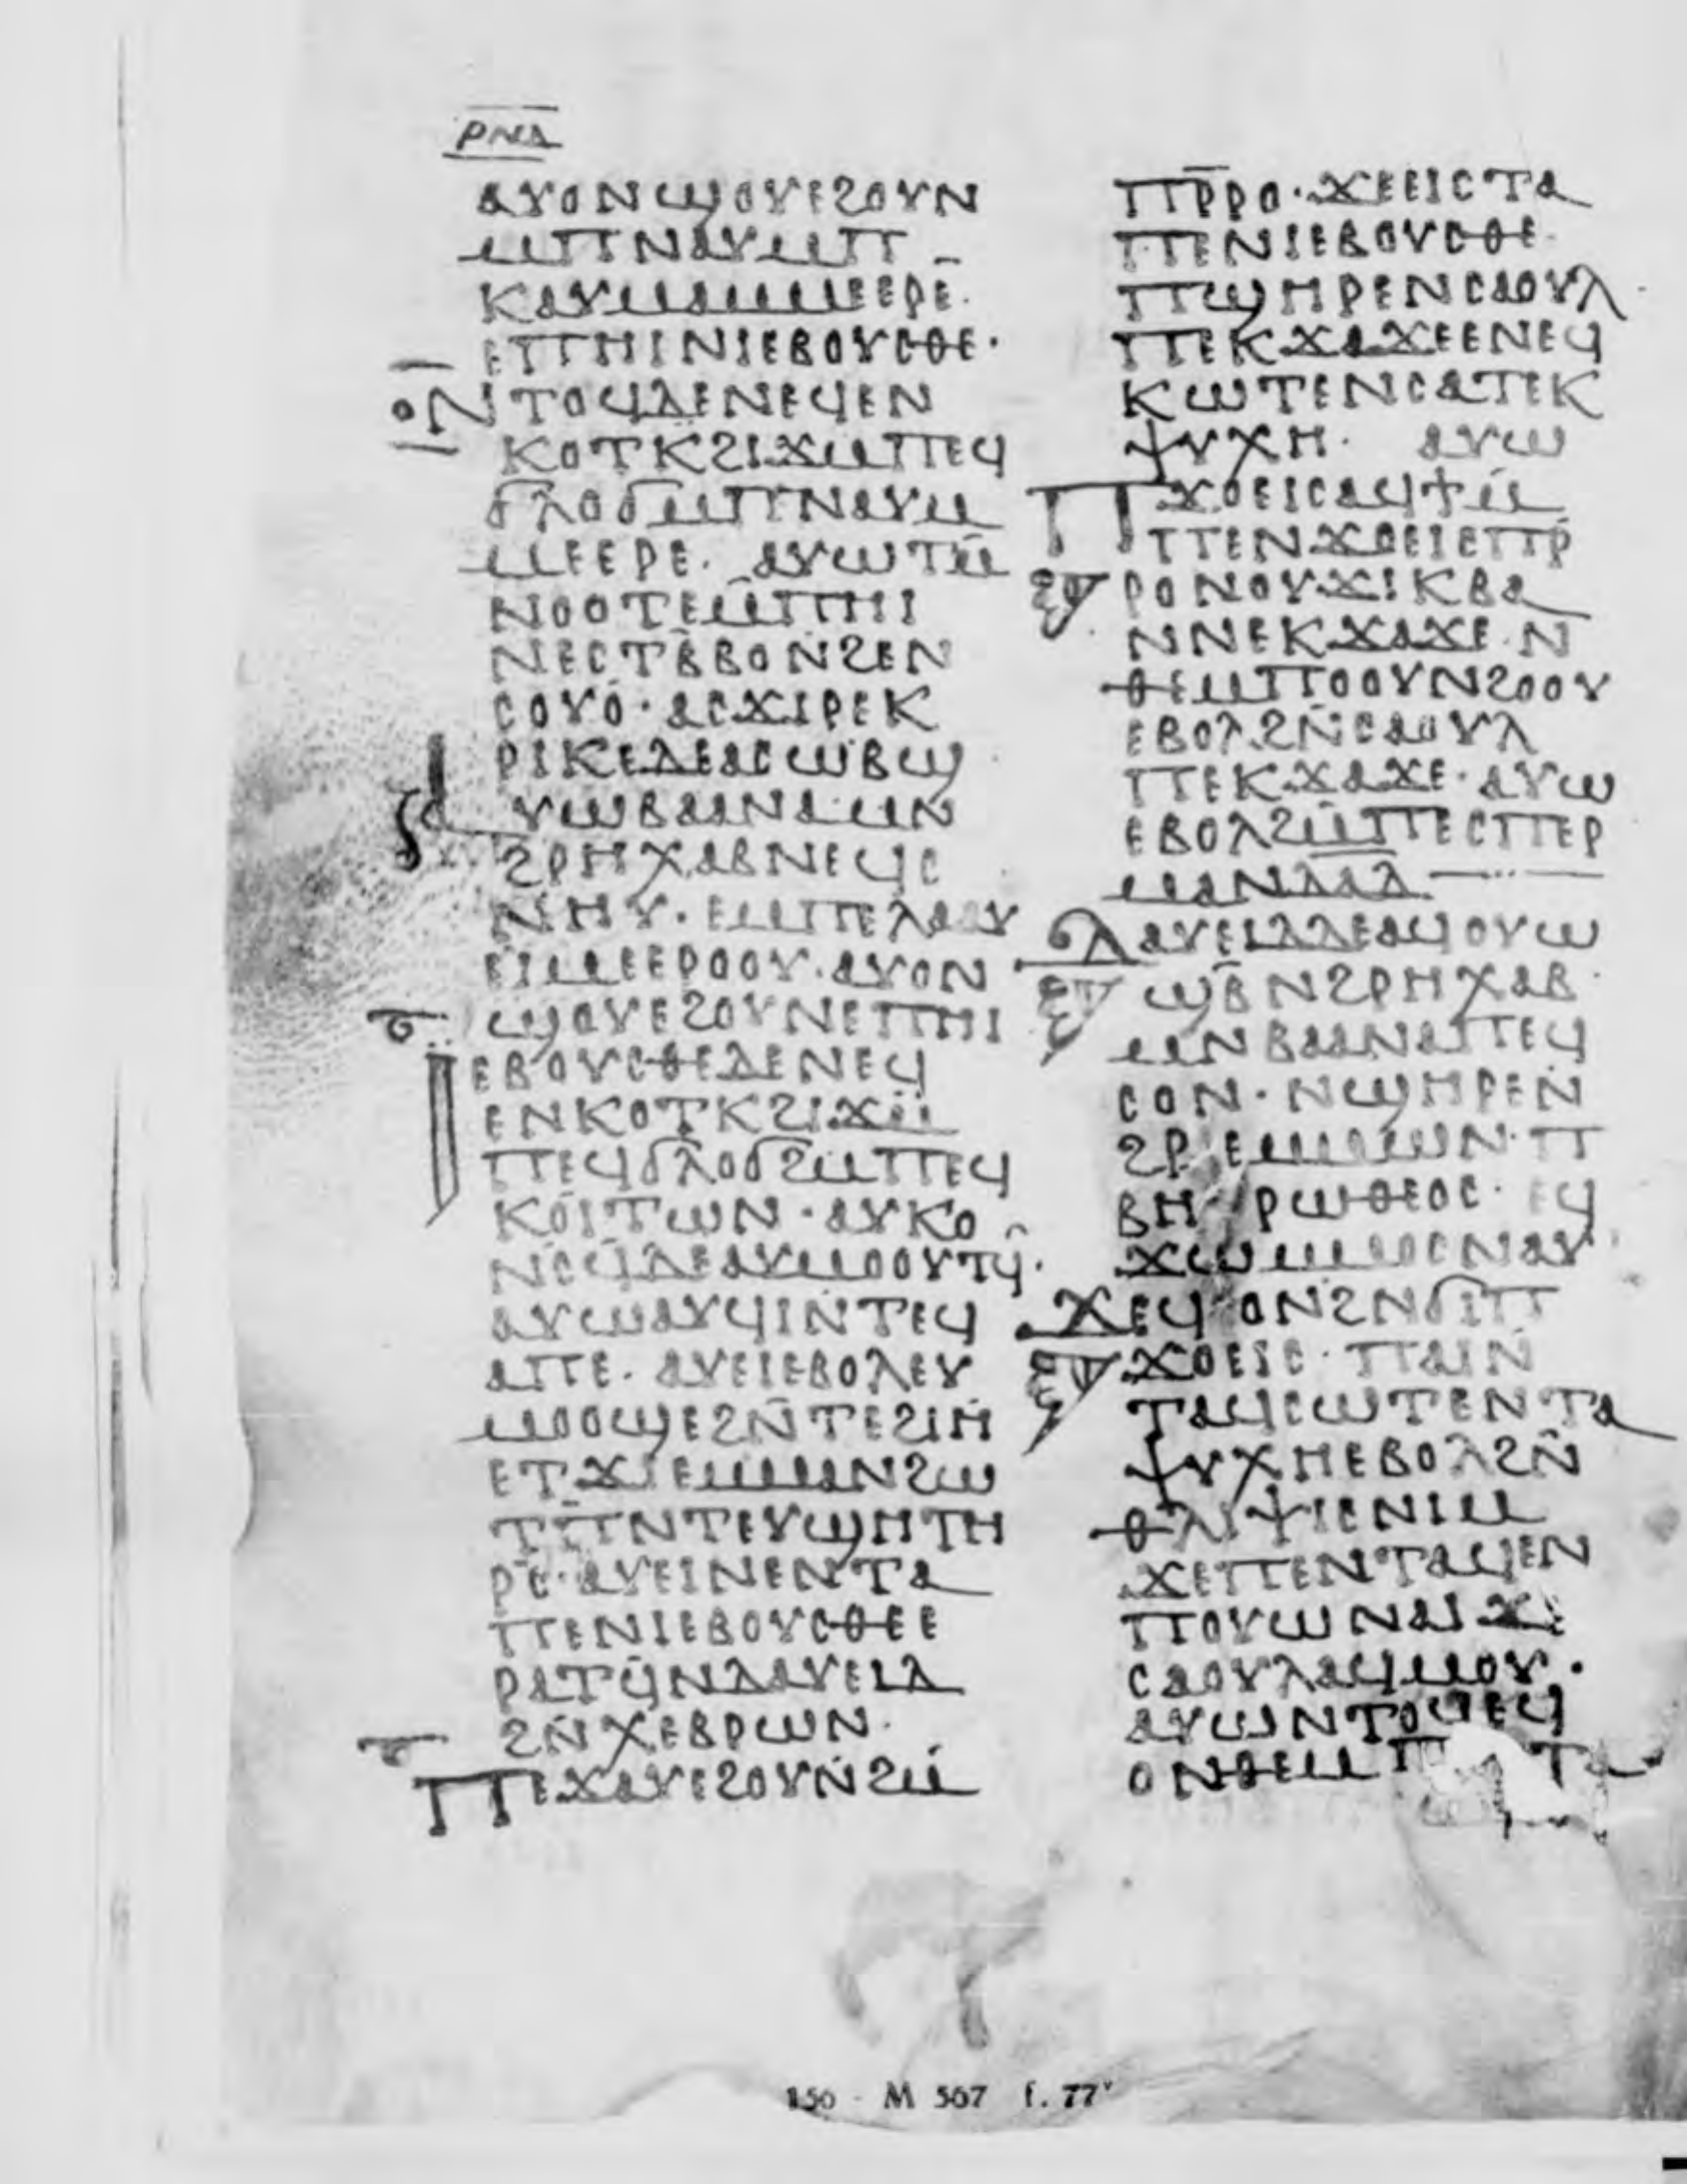 ⲣⲛⲇ
ⲁⲩⲟⲛϣⲟⲩⲉϩⲟⲩⲛ
ⲙⲡⲛⲁⲩⲙⲡ
ⲕⲁⲩⲙⲁⲙⲙⲉⲉⲣⲉ·
ⲉⲡⲏⲓⲛⲓⲉⲃⲟⲩⲥⲑⲉ·
ⲛⲧⲟϥⲇⲉⲛⲉϥⲉⲛ
ⲕⲟⲧⲕϩⲓϫⲙⲡⲉϥ
ϭⲗⲟϭⲙⲡⲛⲁⲩⲙ
ⲙⲉⲉⲣⲉ· ⲁⲩⲱⲧⲙ̄
ⲛⲟⲟⲧⲉⲙ̄ⲡⲏⲓ
ⲛⲉⲥⲧⲃ̄ⲃⲟⲛ̇ϩⲉⲛ
ⲥⲟⲩⲟ̇· ⲁⲥϫⲓⲣⲉⲕ
ⲣⲓⲕⲉⲇⲉⲁⲥⲱⲃϣ
ⲁⲩⲱⲃⲁⲁⲛⲁⲙⲛ
ϩⲣⲏⲭⲁⲃⲛⲉϥⲥ
ⲛⲏⲩ· ⲉⲙⲡⲉⲗⲁⲁⲩ
ⲉⲓⲙⲉⲉⲣⲟⲟⲩ·ⲁⲩⲟⲛ
ϣⲟⲩⲉϩⲟⲩⲛⲉⲡⲏⲓ
ⲓⲉⲃⲟⲩⲥⲑⲉⲇⲉⲛⲉϥ
ⲉⲛⲕⲟⲧⲕϩⲓϫⲙ̇
ⲡⲉϥϭⲗⲟϭϩⲙⲡⲉϥ
ⲕⲟⲓⲧⲱⲛ·ⲁⲩⲕⲟ
ⲛⲥϥⲇⲉⲁⲩⲙⲟⲟⲩⲧϥ̇·
ⲁⲩⲱⲁⲩϥⲓⲛⲧⲉϥ
ⲁⲡⲉ· ⲁⲩⲉⲓⲉⲃⲟⲗⲉⲩ
ⲙⲟⲟϣⲉϩⲛ̄ⲧⲉϩⲓⲏ
ⲉⲧϫⲓⲉⲙⲙⲁⲛϩⲱ
ⲧⲡ̄ⲛⲧⲉⲩϣⲏⲧⲏ
ⲣⲥ̄·ⲁⲩⲉⲓⲛⲉⲛⲧⲁ
ⲡⲉⲛⲓⲉⲃⲟⲩⲥⲑⲉⲉ
ⲣⲁⲧϥ̄ⲛⲇⲁⲩⲉⲓⲇ
ϩⲛ̄ⲭⲉⲃⲣⲱⲛ·
ⲡⲉϫⲁⲩⲉϩⲟⲩⲛ̇ϩⲙ̇
ⲡⲣ̄ⲣⲟ·ϫⲉⲉⲓⲥⲧⲁ
ⲡⲉⲛⲓⲉⲃⲟⲩⲥⲑⲉ·
ⲡϣⲏⲣⲉⲛⲥⲁⲟⲩⲗ·
ⲡⲉⲕϫⲁϫⲉⲉⲛⲉϥ
ⲕⲱⲧⲉⲛⲥⲁⲧⲉⲕ
ⲯⲩⲭⲏ· ⲁⲩⲱ
ⲡϫⲟⲉⲓⲥⲁϥϯⲙ̇
ⲡⲉⲛϫⲟⲉⲓⲥⲡⲣ̄
ⲣⲟⲛⲟⲩϫⲓⲕⲃⲁ
ⲛⲛⲉⲕϫⲁϫⲉ·ⲛ
ⲑⲉⲙⲡⲟⲟⲩⲛϩⲟⲟⲩ
ⲉⲃⲟⲗϩⲛ̄ⲥⲁⲟⲩⲗ
ⲡⲉⲕϫⲁϫⲉ·ⲁⲩⲱ
ⲉⲃⲟⲗϩⲙ̄ⲡⲉⲥⲡⲉⲣ
ⲙⲁⲛⲇⲁⲇ
ⲇⲁⲩⲉⲓⲇⲇⲉⲁϥⲟⲩⲱ
ϣⲃ̄ⲛϩⲣⲏⲭⲁⲃ·
ⲙⲛⲃⲁⲁⲛⲁⲡⲉϥ
ⲥⲟⲛ·ⲛϣⲏⲣⲉⲛ̇
ϩⲣⲉⲙⲙⲱⲛ·ⲡ
ⲃⲏⲣⲱⲑⲉⲟⲥ· ⲉϥ
ϫⲱⲙⲙⲟⲥⲛⲁⲩ·
ϫⲉϥⲟⲛϩⲛϭⲓⲡ
ϫⲟⲉⲓⲥ·ⲡⲁⲓⲛ̇
ⲧⲁϥⲥⲱⲧⲉⲛⲧⲁ
ⲯⲩⲭⲏⲉⲃⲟⲗϩⲛ̄
ⲑⲗⲓⲯⲓⲥⲛⲓⲙ
ϫⲉⲡⲉⲛⲧⲁϥⲉⲛ
ⲡⲟⲩⲱⲛⲁⲓϫⲉ
ⲥⲁⲟⲩⲗⲁϥⲙⲟⲩ·
ⲁⲩⲱⲛⲧⲟϥⲉϥ
ⲟⲛⲑⲉⲙⲡ
150 M 567 f. 77ᵛ